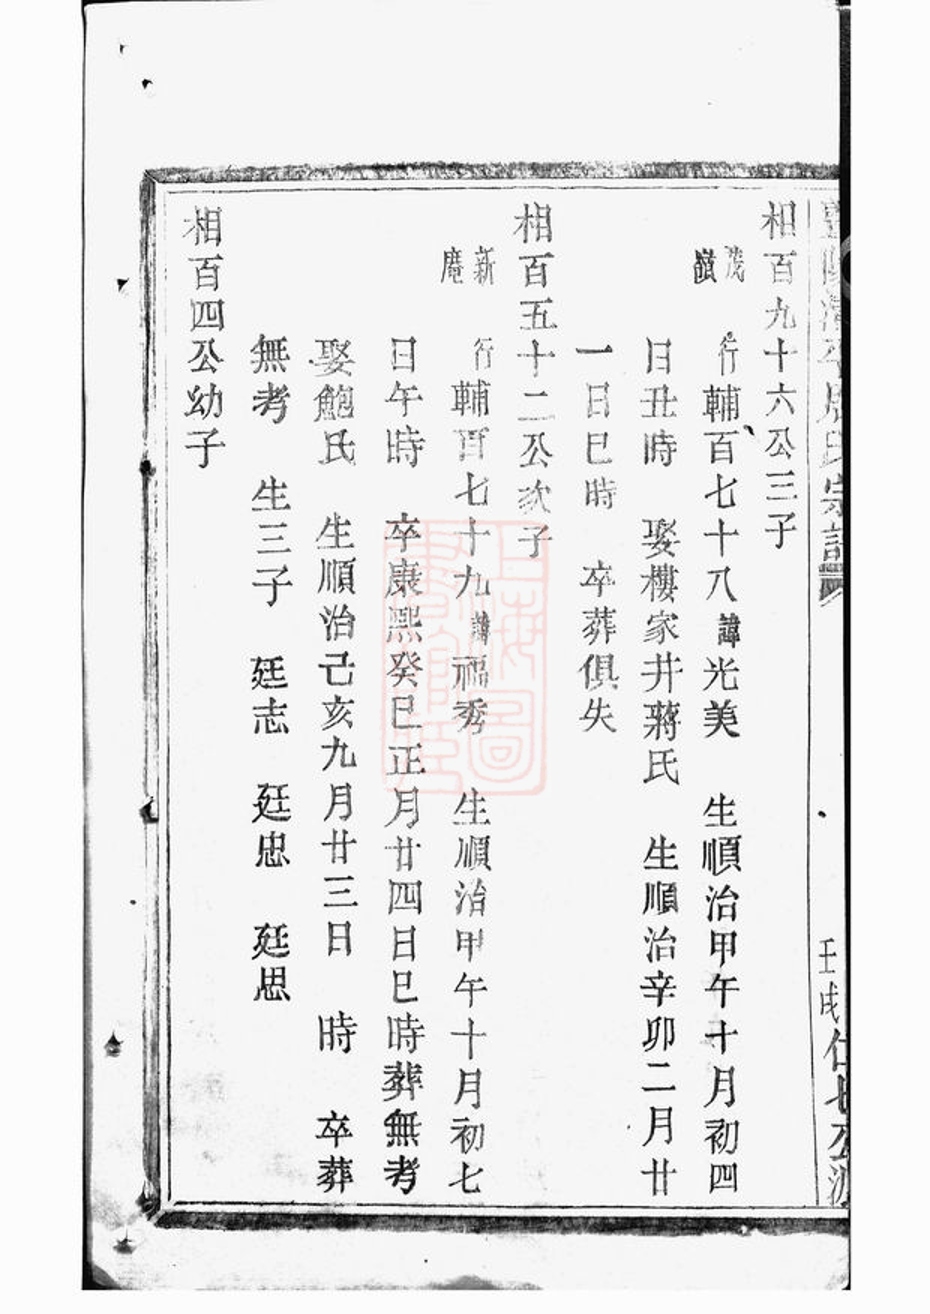 氏宗譜
壬戌仕七公派
相百九十六公三子
茂嶺 行輔百七十八諱光美 生順治甲午十月初四
日丑時 娶樓家井蔣氏 生順治辛卯二月廿
一日巳時 卒葬俱失
相百五十二公次子
新庵 行輔百七十九諱福秀 生順治甲午十月初七
日午時 卒康熙癸巳正月廿四日巳時葬無考
娶鮑氏 生順治己亥九月廿三日 時 卒葬
無考 生三子 廷志 廷忠 廷思
相百四公幼子
上海圖書館藏